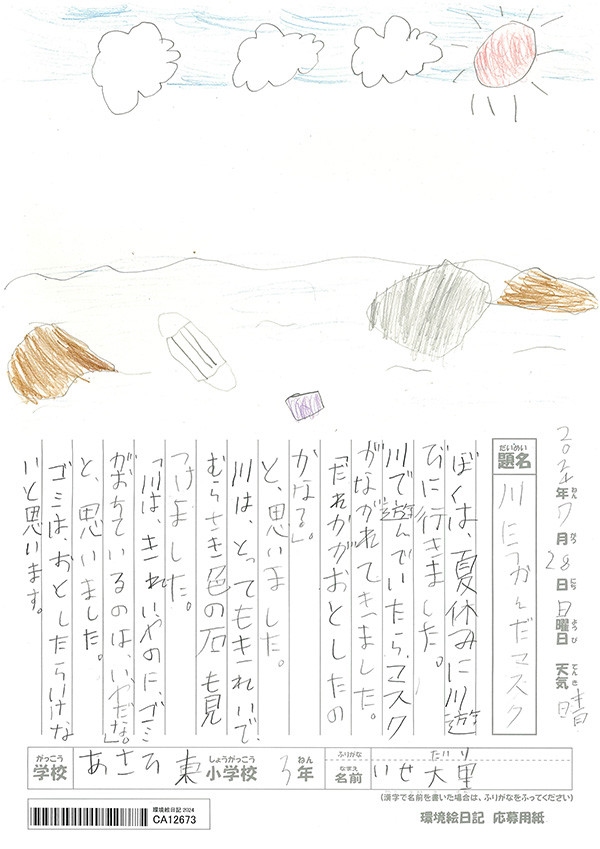 2024年7月28日日曜日 天気 晴
ねん がつ にち ようび てんき
だいめい
題名 川にうかんだマスク
ぼくは、夏休みに川遊
びに行きました。
川で遊んでいたら、マスク
がながれてきました。
「だれかがおとしたの
かなる。」
と、思いました。
川は、とってもきれいで、
むらさき色の石も見
つけました。
「川は、きれいやのに、ゴミ
がおちているのは、いやだな。」
と、思いました。
ゴミは、おとしたらいけな
いと思います。
がっこう しょうがっこう ねん ふりがな たいり
学校 あさひ東小学校 3年 なまえ 名前 いせ大里
(漢字で名前を書いた場合は、ふりがなをふってください)
環境絵日記2024
CA12673
環境絵日記 応募用紙